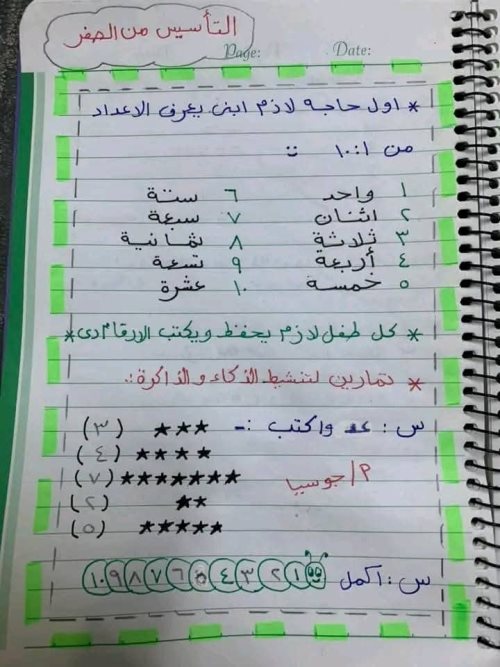 التأسيس من الصفر
Page: Date:
* اول حاجه لازم ابنى يعرف الاعداد
من ١:١٠ =
١ واحد ٦ ستة
٢ اثنان ٧ سبعة
٣ ثلاثة ٨ ثمانية
٤ أربعة ٩ تسعة
٥ خمسة ١٠ عشرة
* كل طفل لازم يحفظ ويكتب الارقام دى *
* تمارين لتنشيط الذكاء والذاكرة :.
س : عد واكتب :-
★★★ (٣)
★★★★ (٤)
★★★★★★★ (٧)
م/جوسيا
★★ (٢)
★★★★★ (٥)
س : أكمل ١ ٢ ٣ ٤ ٥ ٦ ٧ ٨ ٩ ١٠